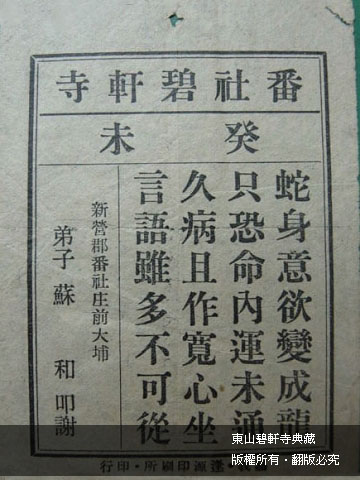 番社碧軒寺
癸未
蛇身意欲變成龍
只恐命內運未通
久病且作寬心坐
言語雖多不可從
新營郡番社庄前大埔
弟子蘇 和 叩謝
蓬源印刷所・印行
東山碧軒寺典藏
版權所有・翻版必究